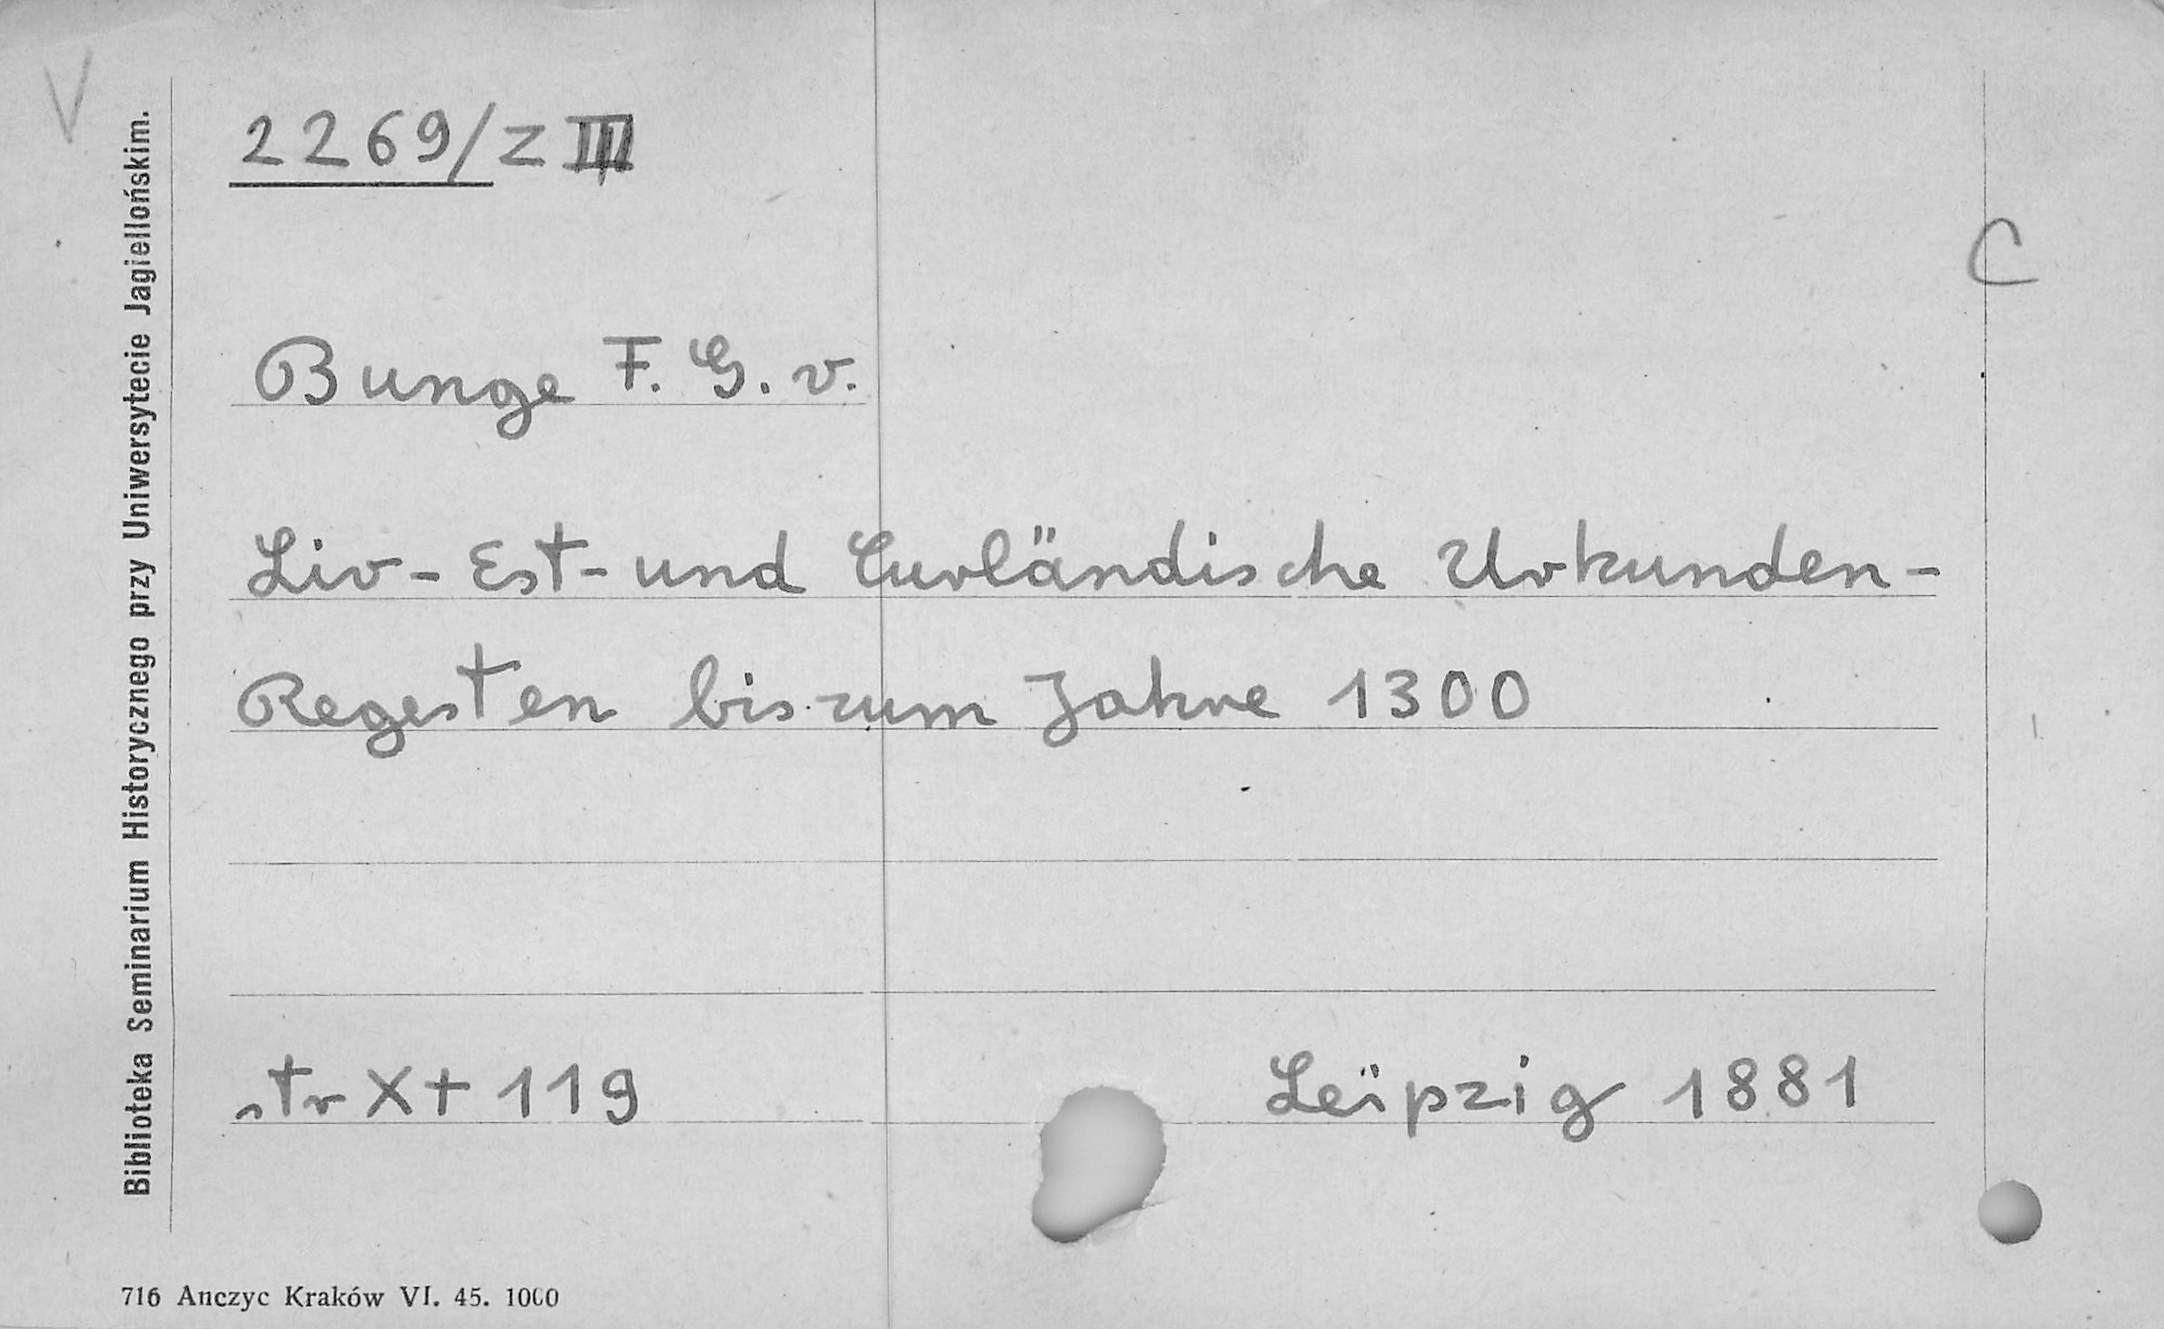 V
2269/Z III
C
Bunge F. G. v.
Liv-Est-und Curländische Urkunden-
Regesten bis zum Jahre 1300
str X+119
Leipzig 1881
Biblioteka Seminarium Historycznego przy Uniwersytecie Jagiellońskim.
716 Anczyc Kraków VI. 45. 1000